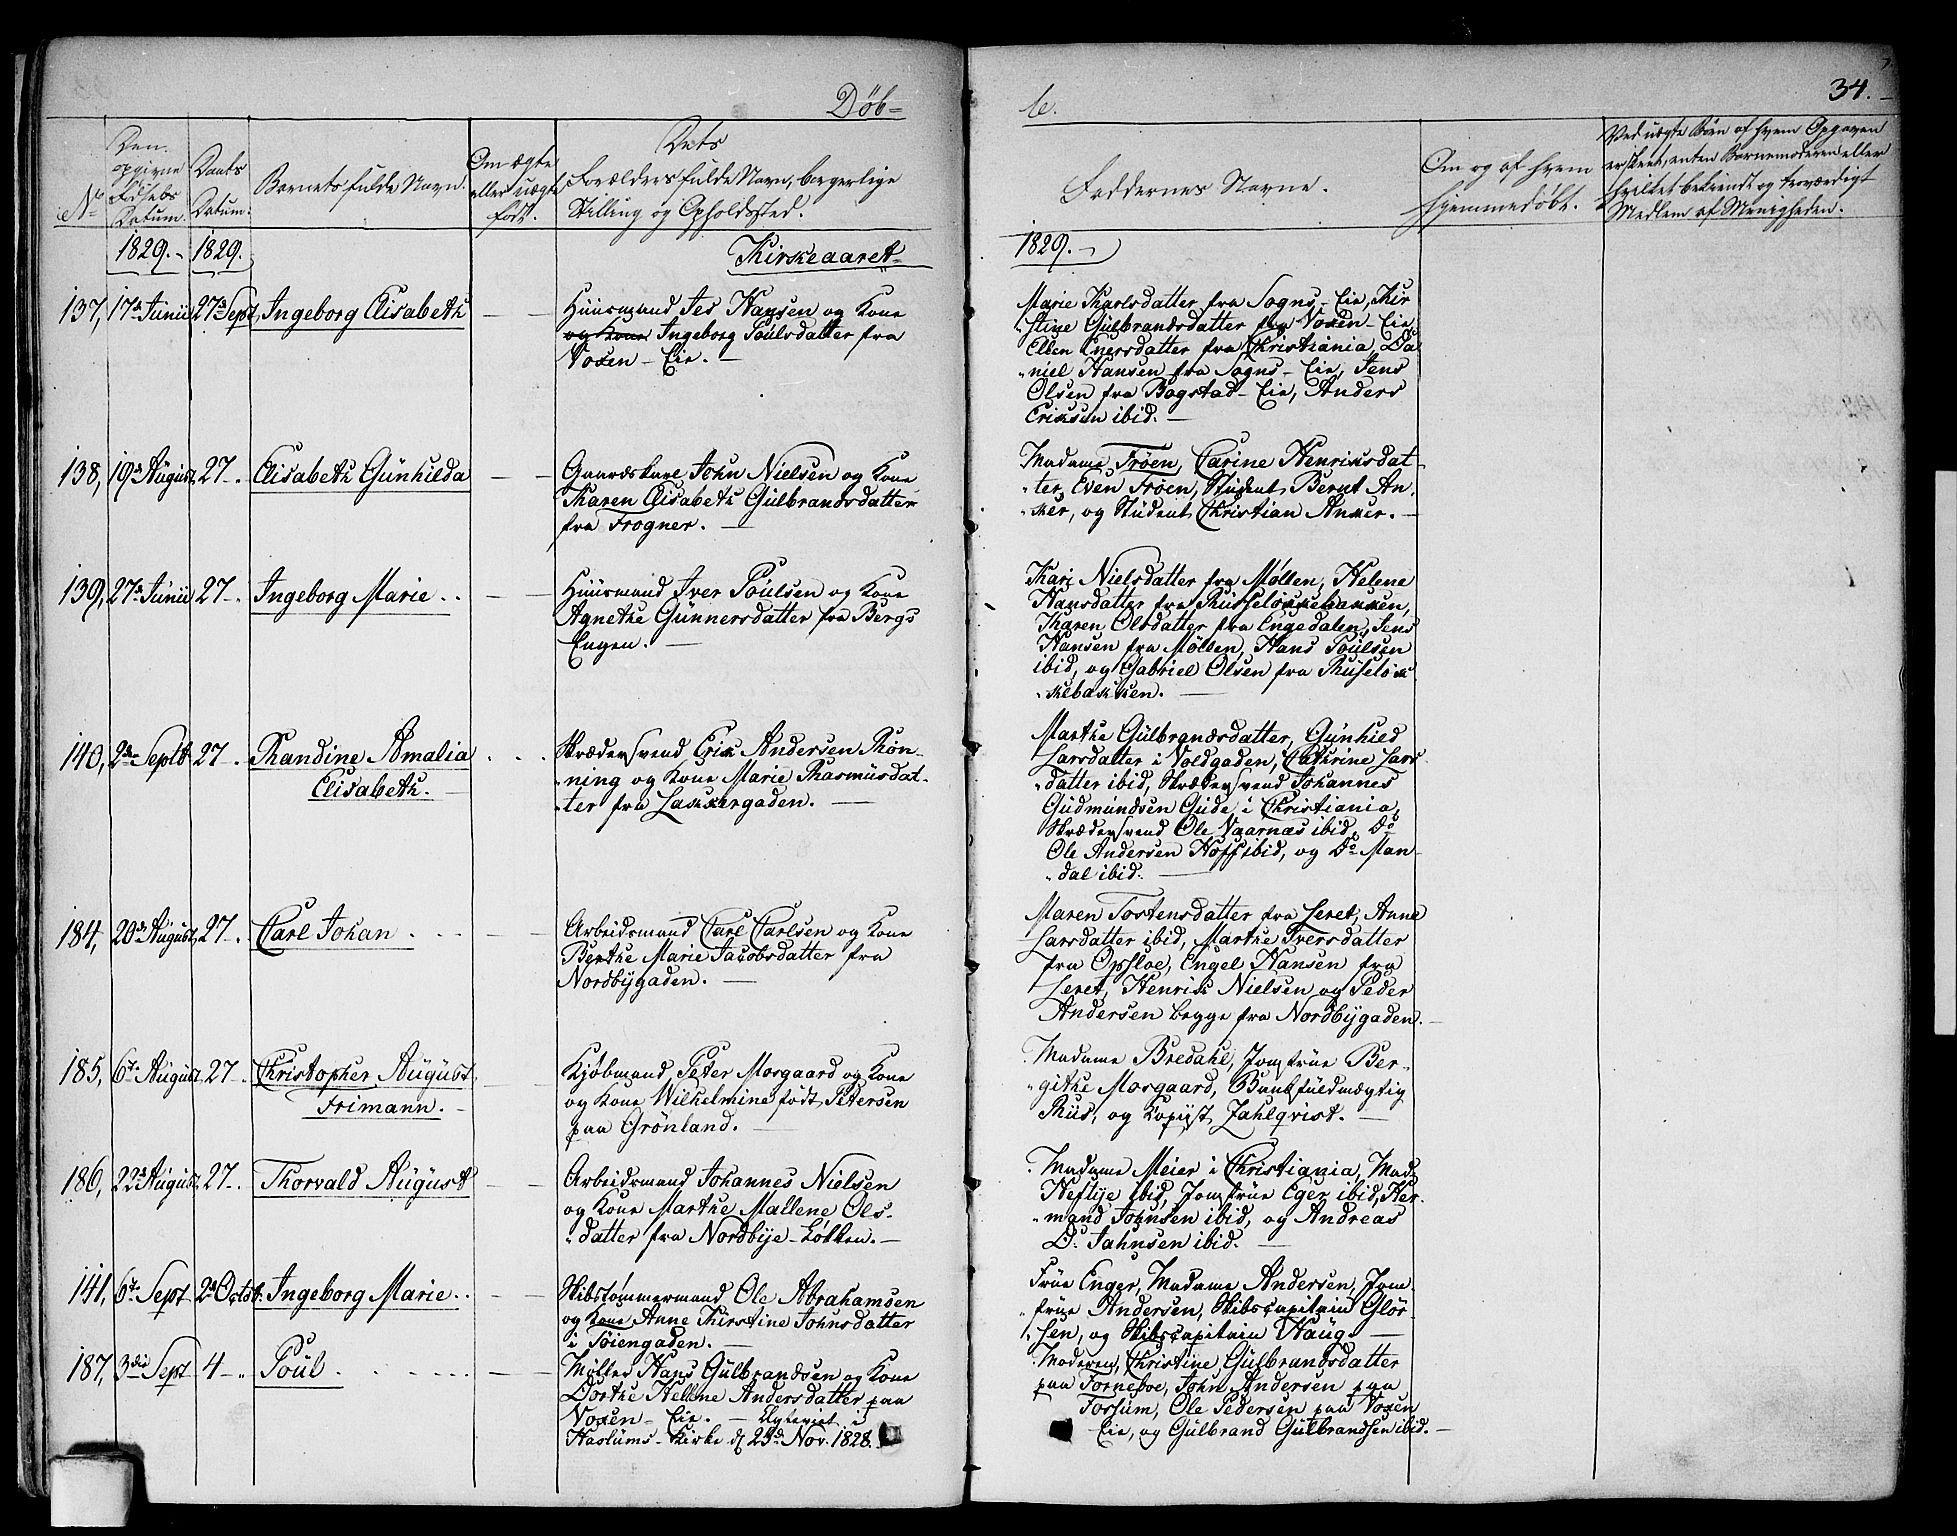 Døb=
No
Den opgivne Fødsels Datum.
Daabs Datum.
Barnets fulde Navn.
Om ægte eller uægte født.
Dets
Forældres fulde Navn, borgerlige
Stilling og Opholdssted.
1829. 1829. Kirkeaaret
137, 17de Junii 27de Sept Ingeborg Elisabeth
Huusmand Jes Hansen og Kone
og Kone Ingeborg Poulsdatter fra
Voxen-Eie.
138, 19de August 27. Elisabeth Gunhilda
Gaardskarl John Nielsen og Kone
Karen Elisabeth Gulbrandsdatter
fra Frogner.
139, 27de Junii 27. Ingeborg Marie
Huusmand Iver Poulsen og Kone
Agnethe Gunnersdatter fra Bergs
Engen.
140, 2den Septb 27. Randine Amalia
Elisabeth.
Skrædersvend Erik Andersen Røn-
ning og Kone Marie Rasmusdat-
ter fra Lakkergaden.
184, 20de August 27. Carl Johan
Arbeidsmand Carl Carlsen og Kone
Berthe Marie Jacobsdatter fra
Nordbygaden.
185, 6te August 27. Christopher August
Frimann.
Kjøbmand Peter Morgaard og Kone
og Kone Wilhelmine født Petersen
paa Grönland.
186, 22de August 27. Thorvald August
Arbeidsmand Johannes Nielsen
og Kone Marthe Mallene Ols-
datter fra Nordbye-Løkken.
141, 6te Sept 2den Octob. Ingeborg Marie
Skibstømmermand Ole Abrahamsen
og Kone Anne Kirstine Johnsdatter
i Tøiengaden.
187, 3die Sept 4 Poul
Møller Hans Gulbrandsen og Kone
Dorthe Hellene Andersdatter paa
Voxen-Eie. – Copuleret i
Haslums-Kirke d 23de Nov. 1828.
te.
34.
Faddernes Navne.
Om og af hvem
hjemmedøbt.
Ved uægte Børn af hvem Opgaven
er skeet, enten Barnemoderen eller
hvilket bekiendt og troværdigt
Medlem af Menigheden.
1829.
Marie Karlsdatter fra Sogns-Eie, Kir
stine Gulbrandsdatter fra Voxen-Eie
Ellen Enersdatter fra Christiania, Da
niel Hansen fra Sogns-Eie, Jens
Olsen fra Bogstad-Eie, Anders
Eriksen ibid.
Madame Frøen, Carine Henriksdat
ter, Even Frøen, Student Bernt An-
ker, og Student Christian Anker.
Kari Nielsdatter fra Møllen, Helene
Hansdatter fra Russeløkkebakken,
Karen Olsdatter fra Engedalen, Jens
Hansen fra Møllen, Hans Poulsen
ibid, og Gabriel Olsen fra Ruseløk
kebakken.
Marthe Gulbrandsdatter, Gunhild
Larsdatter i Voldgaden, Cathrine Lars
datter ibid, Skrædersvend Johannes
Gudmundsen Gude i Christiania,
Skrædersvend Ole Vaarnæs ibid, Do
Ole Andersen Hoff ibid, og Do Man-
dal ibid.
Maren Tostensdatter fra Leret, Anne
Larsdatter ibid, Marthe Iversdatter
fra Opsloe, Engel Hansen fra
Leret, Henrik Nielsen og Peder
Andersen begge fra Nordbygaden.
Madame Bredahl, Jomfrue Ber-
githe Morgaard, Bankfuldmægtig
Ruus, og Kopiist Zahlqvist.
Madame Meier i Christiania, Mad.
Heftye ibid, Jomfrue Eger ibid, Her-
mand Johnsen ibid, og Andreas
D. Jahnsen ibid.
Frue Enger, Madame Andersen, Jom
frue Andersen, Skibscapitain Glør
sen, og Skibscapitain Haug
Moderen, Christine Gulbrandsdatter
paa Forneboe, John Andersen paa
Fossum, Ole Pedersen paa Voxen
Eie, og Gulbrand Gulbrandsen ibid.